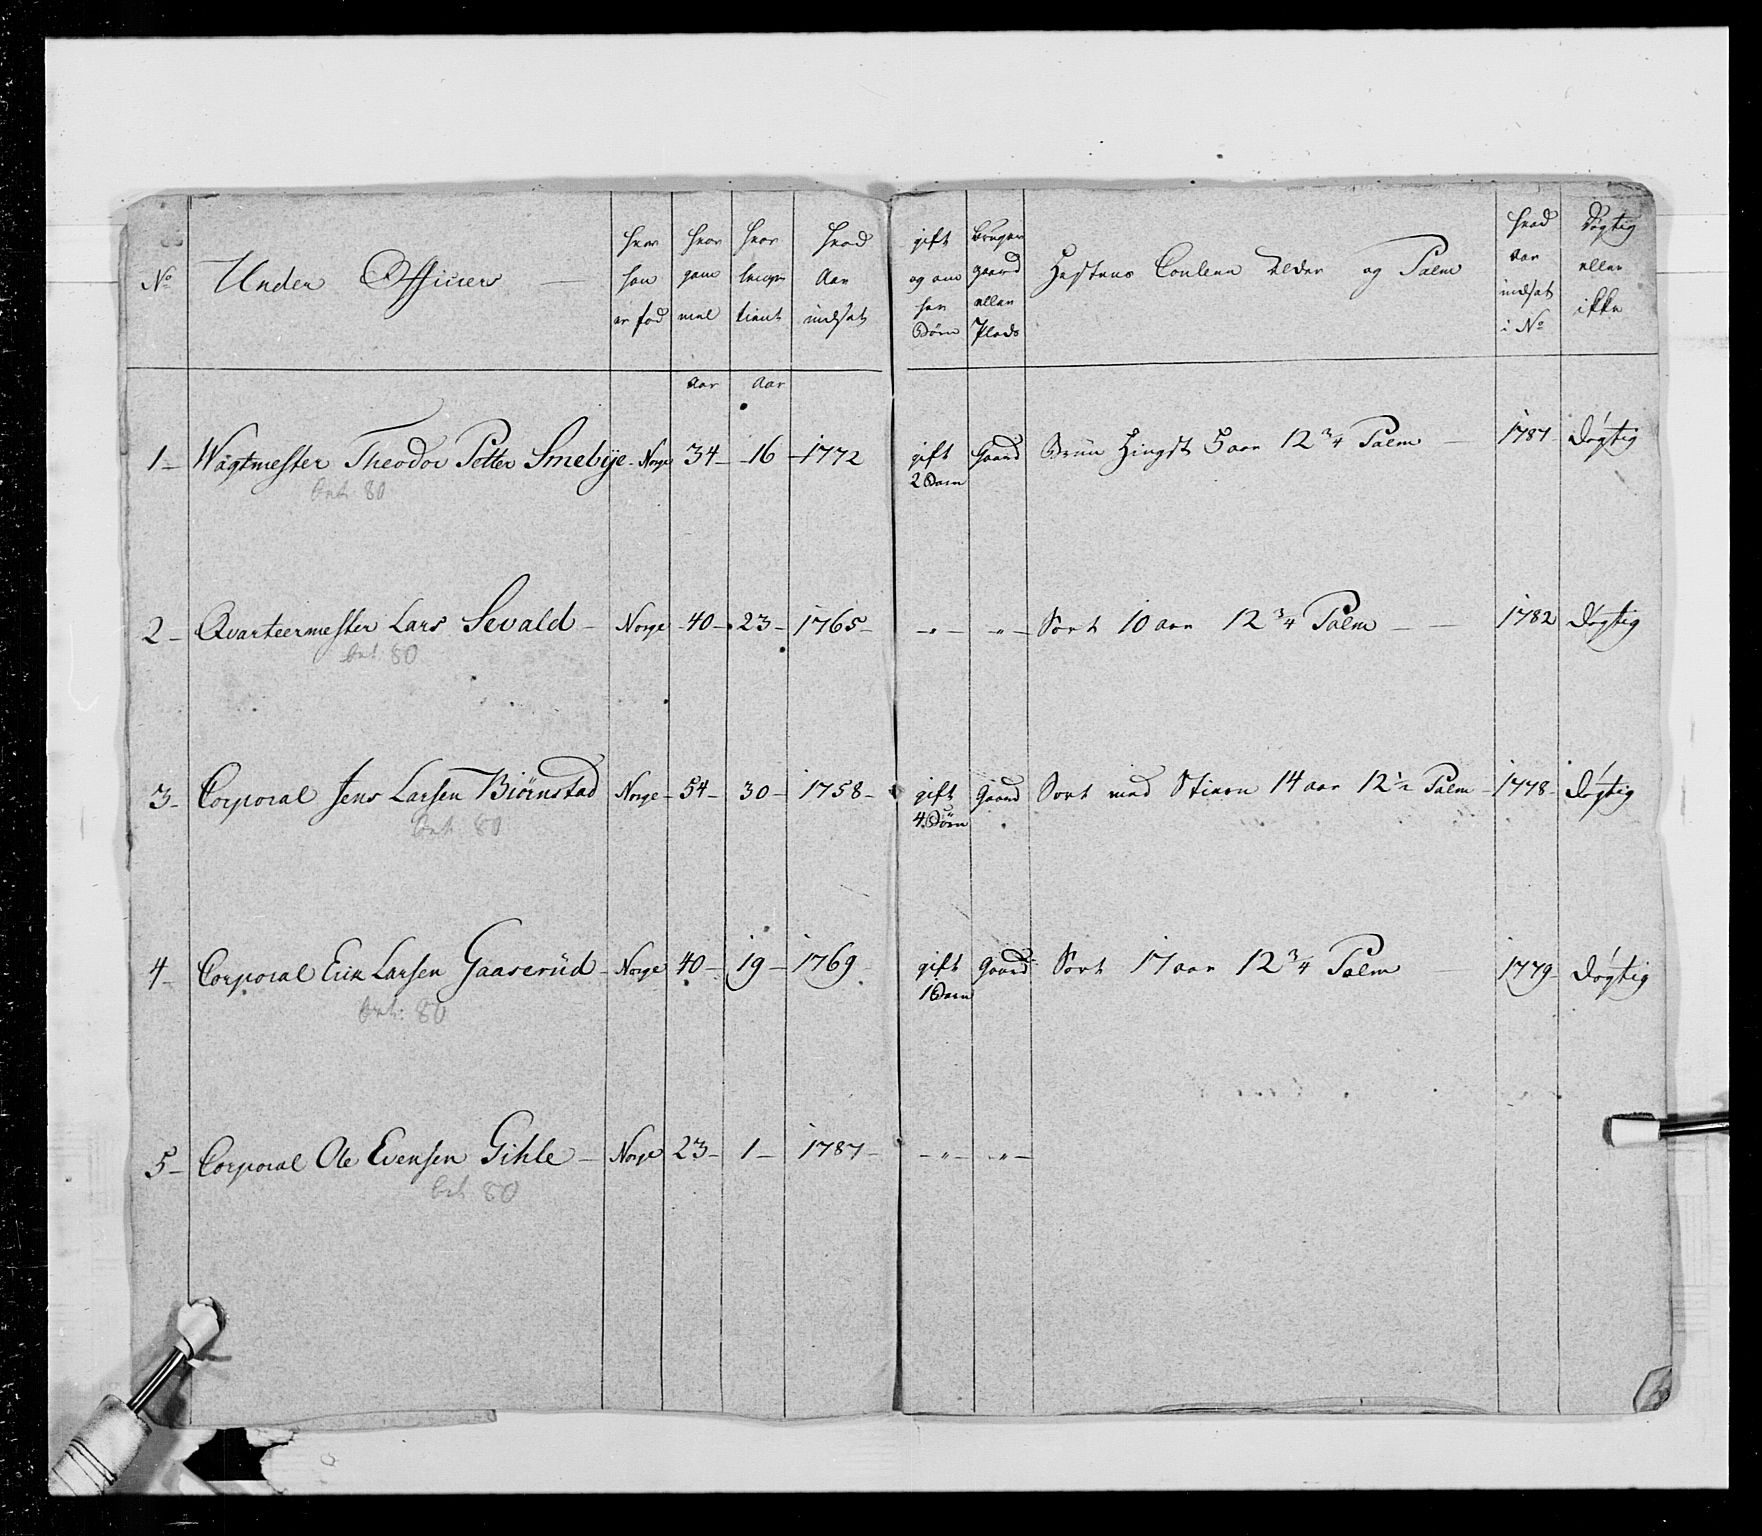 No Under Officiers hvor han er fød hvor gam mel hvor længe tient hvad Aar indsat gift og om har Børn bruger gaard eller Plads Hestens Couleur Alder og Palm hvad Aar indsat i No Døgtig eller ikke
aar aar
1 - Wagtmester Theodor Petter Smebye - Norge 34 - 16 - 1772 gift 2 Børn Gaard Brun Hingst 5 aar 12 3/4 Palm - 1787 Døgtig
80
2 - Qvarteermester Lars Sevald - Norge - 40 - 23 - 1765 - - " - - " - Sort 10 aar 12 3/4 Palm - - 1782 Døgtig
80
3 - Corporal Jens Larsen Biørnstad Norge - 54 - 30 - 1758 - gift 4 Børn Gaard Sort med Stiern 14 aar 12 1/2 Palm - 1778 - Døgtig
80
4 - Corporal Erik Larsen Gaaserüd - Norge 40 - 19 - 1769 gift 1 Barn Gaard Sort 17 aar 12 3/4 Palm 1779 - Døgtig
80
5 - Corporal Ole Evensen Gihle - Norge 23 - 1 - 1787 - - " - - " -
80